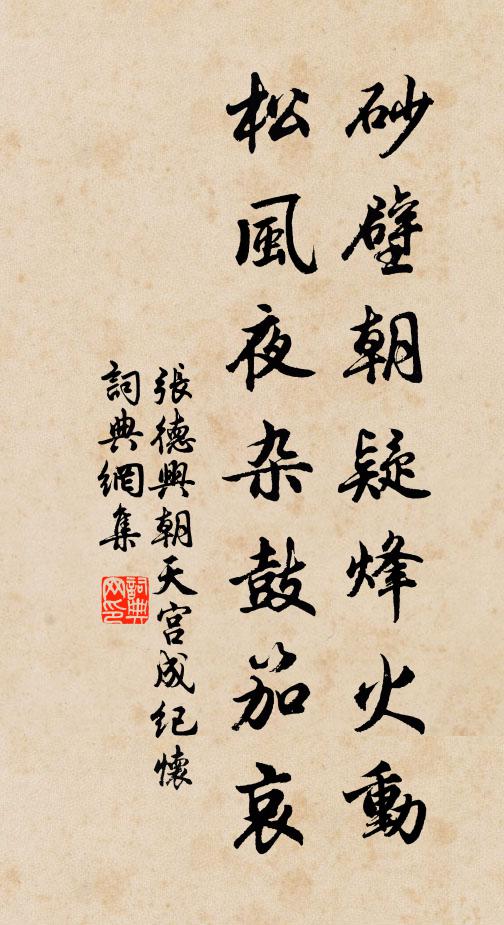 砂壁朝疑烽火動
松風夜杂鼓笳哀
張德興朝天宮成纪懷
詞典網集
詞典
网印